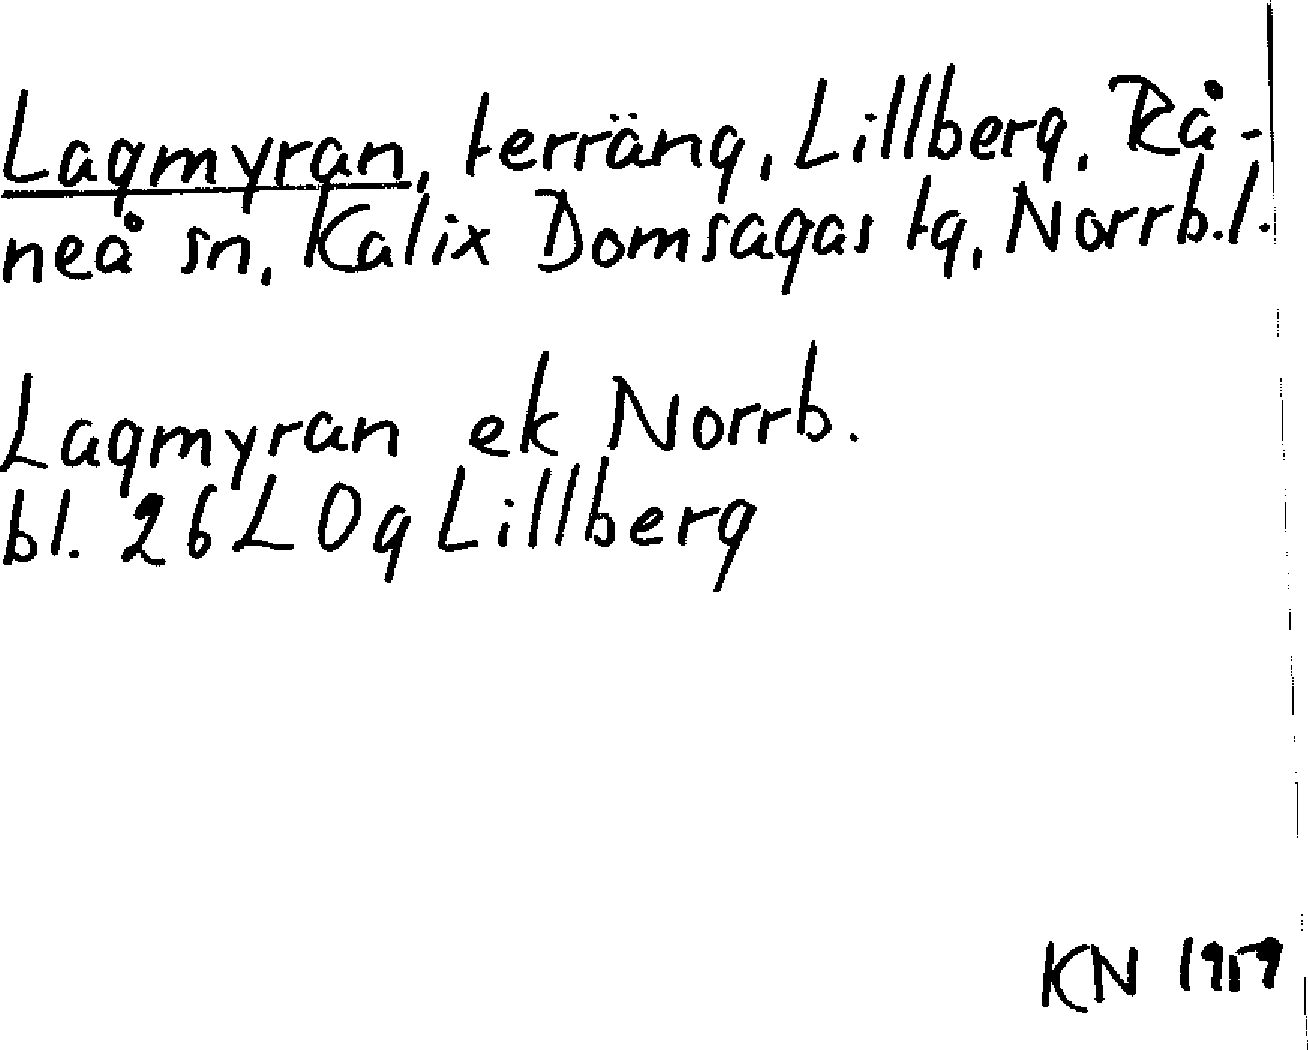 Lagmyran, terräng, Lillberg, Rå-
neå sn, Kalix Domsagas tg, Norrb.l.
Lagmyran ek Norrb.
bl. 26 L 0g Lillberg
KN 1959